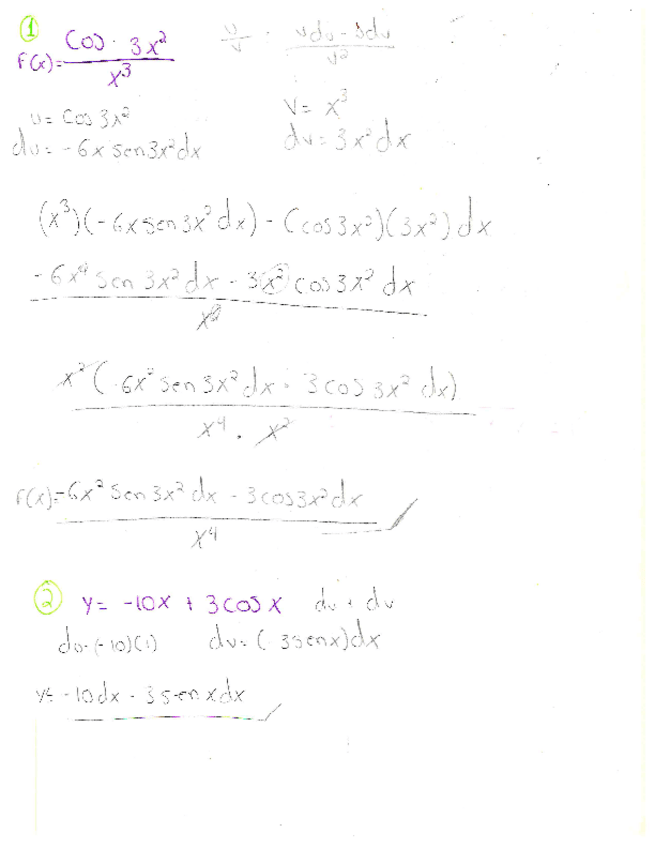 ① f(x)= cos · 3x² / x³    u/v = vdu - udv / v²
u= Cos 3x²    V= x³
du= -6x sen3x²dx    dv= 3x²dx
(x³)(-6x sen 3x² dx) - (cos3x²)(3x²) dx
-6x⁴ sen 3x² dx - 3x² cos 3x² dx
x⁶
x²(-6x² sen 3x² dx - 3 cos 3x² dx)
x⁴ · x²
f(x)= -6x² sen 3x² dx - 3cos3x²dx
x⁴
② y= -10x + 3cos x    du + dv
du=(-10)(1)    dv= (-3senx)dx
y= -10dx - 3senxdx